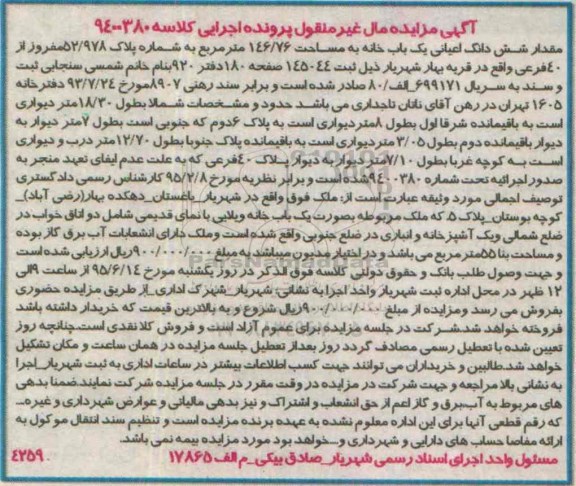 آگهی مزایده مال غیر منقول پرونده اجرایی کلاسه ۹۴۰۰۳۸۰
مقدار شش دانگ اعیانی یک باب خانه به مساحت ۱۴۶/۷۶ مترمربع به شماره پلاک ۵۲/۹۷۸مفروز از
۴۰فرعی واقع در قریه بهار شهریار ذیل ثبت ۱۴۵۰۴۴ صفحه ۱۸۰دفتر ۹۲۰بنام خانم شمسی سنجابی ثبت
و سند به سریال ۶۹۹۱۷۱_الف/۸۰ صادر شده است و برابر سند رهنی ۸۹۰۷مورخ ۹۳/۷/۲۴ دفترخانه
۱۶۰۵ تهران در رهن آقای تاجداری می باشد حدود و مشخصات شمالا بطول ۱۸/۳۰متر دیواری
است به باقیمانده شرقا اول بطول ۸متردیواری است به پلاک ۶دوم که جنوبی است بطول ۷متر دیوار به
دیوار باقیمانده دوم بطول ۳/۰۵ متردیواری است به باقیمانده پلاک جنوبا بطول ۱۲/۷۰متر درب و دیواری
است به کوچه غربا بطول ۷/۱۰متر دیوار به دیوار پلاک ۴۰فرعی که به علت عدم ایفای تعهد منجر به
صدور اجرائیه تحت شماره ۹۴۰۰۳۸۰شده است و برابر نظریه مورخ ۹۵/۲/۸ کارشناس رسمی دادگستری
توصیف اجمالی مورد وثیقه عبارت است از: ملک فوق واقع در شهریار_باغستان_دهکده بهار(رضی آباد)_
کوچه بوستان_پلاک ۵، که ملک مربوطه بصورت یک باب خانه ویلایی با نمای قدیمی شامل دو اتاق خواب در
ضلع شمالی ویک آشپزخانه و انباری در ضلع جنوبی واقع شده است وملک دارای انشعابات آب برق گاز بوده
و مساحت بنا ۵۵متر مربع می باشد و در اختیار مدیون میباشد به مبلغ ۹۰۰/۰۰۰/۰۰۰ریال ارزیابی شده است
و جهت وصول طلب بانک و حقوق دولتی کلاسه فوق الذکر در روز یکشنبه مورخ ۹۵/۶/۱۴ از ساعت ۹الی
۱۲ ظهر در محل اداره ثبت شهریار واحد اجرا به نشانی: شهریار_شهرک اداری_از طریق مزایده حضوری
بفروش می رسد ومزایده از مبلغ ۹۰۰/۰۰۰/۰۰۰ریال شروع و به بالاترین قیمت که خریدار داشته باشد
فروخته خواهد شد.شرکت در جلسه مزایده برای عموم آزاد است و فروش کلا نقدی است.چنانچه روز
تعیین شده با تعطیل رسمی مصادف گردد روز بعد از تعطیل جلسه مزایده در همان ساعت و مکان تشکیل
خواهد شد.طالبین و خریداران می توانند جهت کسب اطلاعات بیشتر در ساعات اداری به ثبت شهریار_اجرا
به نشانی بالا مراجعه و جهت شرکت در مزایده در وقت مقرر در جلسه مزایده شرکت نمایند.ضمنا بدهی
های مربوط به آب.برق و گاز اعم از حق انشعاب و اشتراک و نیز بدهی مالیاتی و عوارض شهرداری و غیره_
که رقم قطعی آنها برای این اداره معلوم نشده به عهده برنده مزایده است و تنظیم سند انتقال موکول به
ارائه مفاصا حساب های دارایی و شهرداری و_خواهد بود مورد مزایده بیمه نمی باشد.
مسئول واحد اجرای اسناد رسمی شهریار_صادق بیکی_م الف ۱۷۸۶۵ ۴۲۵۹۰